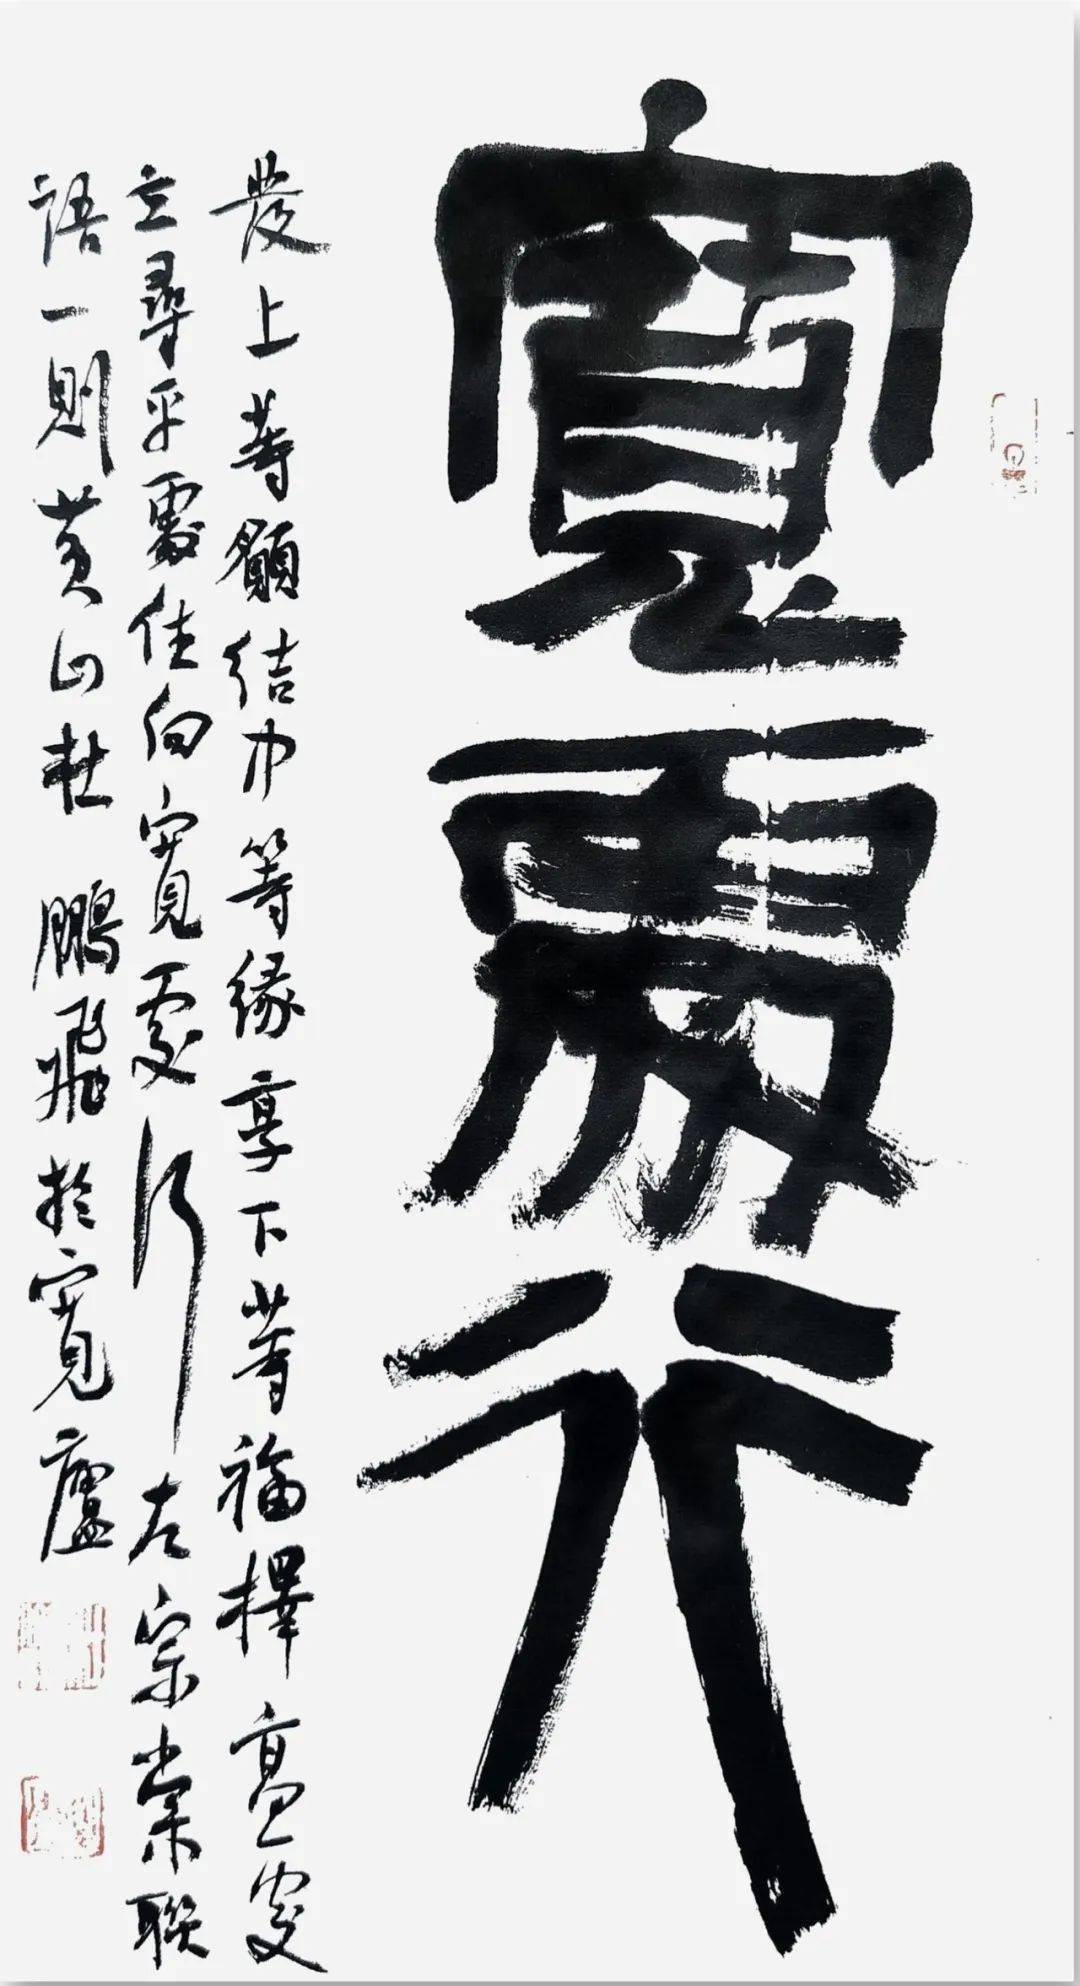 寬處行
發上等願結中等緣享下等福擇高處
立尋平處住向寬處行左宗棠聯
語一則黃山杜鵬飛於寬廬